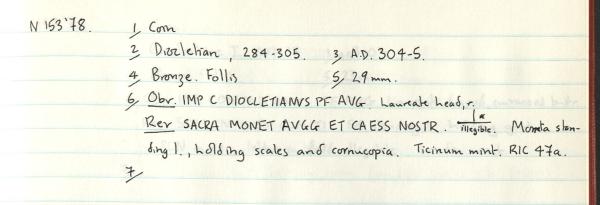 N 153'78. 1/ Coin
2/ Diocletian, 284-305. 3/ A.D. 304-5.
4/ Bronze. Follis 5/ 29mm.
6/ Obv. IMP C DIOCLETIANVS PF AVG Laureate head, r.
Rev SACRA MONET AVGG ET CAESS NOSTR. illegible. Moneta stan-
ding l., holding scales and cornucopia. Ticinum mint. RIC 47a.
7/